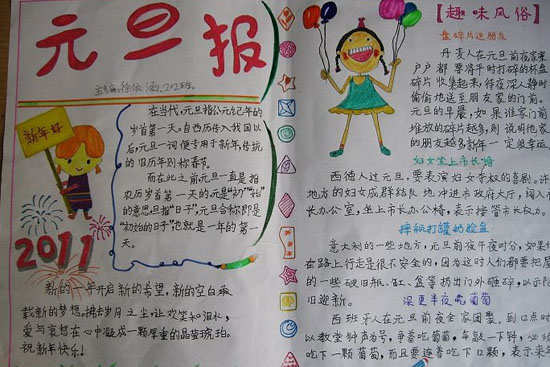 元旦报
新年好
2011
在当代,元旦指公元纪年的
岁首第一天。自西历传入我国以
后,元旦一词便专用于新年,传统
的旧历年则称春节。
而在此之前,元旦一直是指
农历岁首第一天的。元是"初""始"
的意思,旦指"日子",元旦合称即是
"初始的日子"也就是一年的第一
天。
新的一年开启新的希望,新的空白承
载新的梦想。拂去岁月之尘,让欢笑和泪水,
爱与哀愁在心中凝成一颗厚重的晶莹琥珀。
祝新年快乐!
【趣味风俗】
盘碎片送朋友
丹麦人在元旦前夜家家
户户都要将平时打碎的杯盘
碎片收集起来,待夜深人静时
偷偷地送至朋友家的门前。
元旦的早晨,如果谁家门前
堆放的碎片越多,则说明他家
的朋友越多新年一定幸运
妇女坐上市长椅
西德人过元旦,要表演妇女夺权的喜剧。
地方的妇女成群结队地冲进市政府大厅,闯入市
长办公室,坐上市长办公椅,表示接管市长权力。
摔瓶打罐的脸盆
意大利的一些地方,元旦前夜午夜时分,如果
在路上行走是很不安全的,因为这时人们都要把屋
的一些破旧瓶、缸、盆等扔出门外砸碎,以示除
旧迎新。
深更半夜吃葡萄
西班牙人在元旦前夜全家团聚,到12点时
以教堂钟声为号,争着吃葡萄,每敲一下钟,必须
吃下一颗葡萄,而且要连着吃下12颗,表示来年